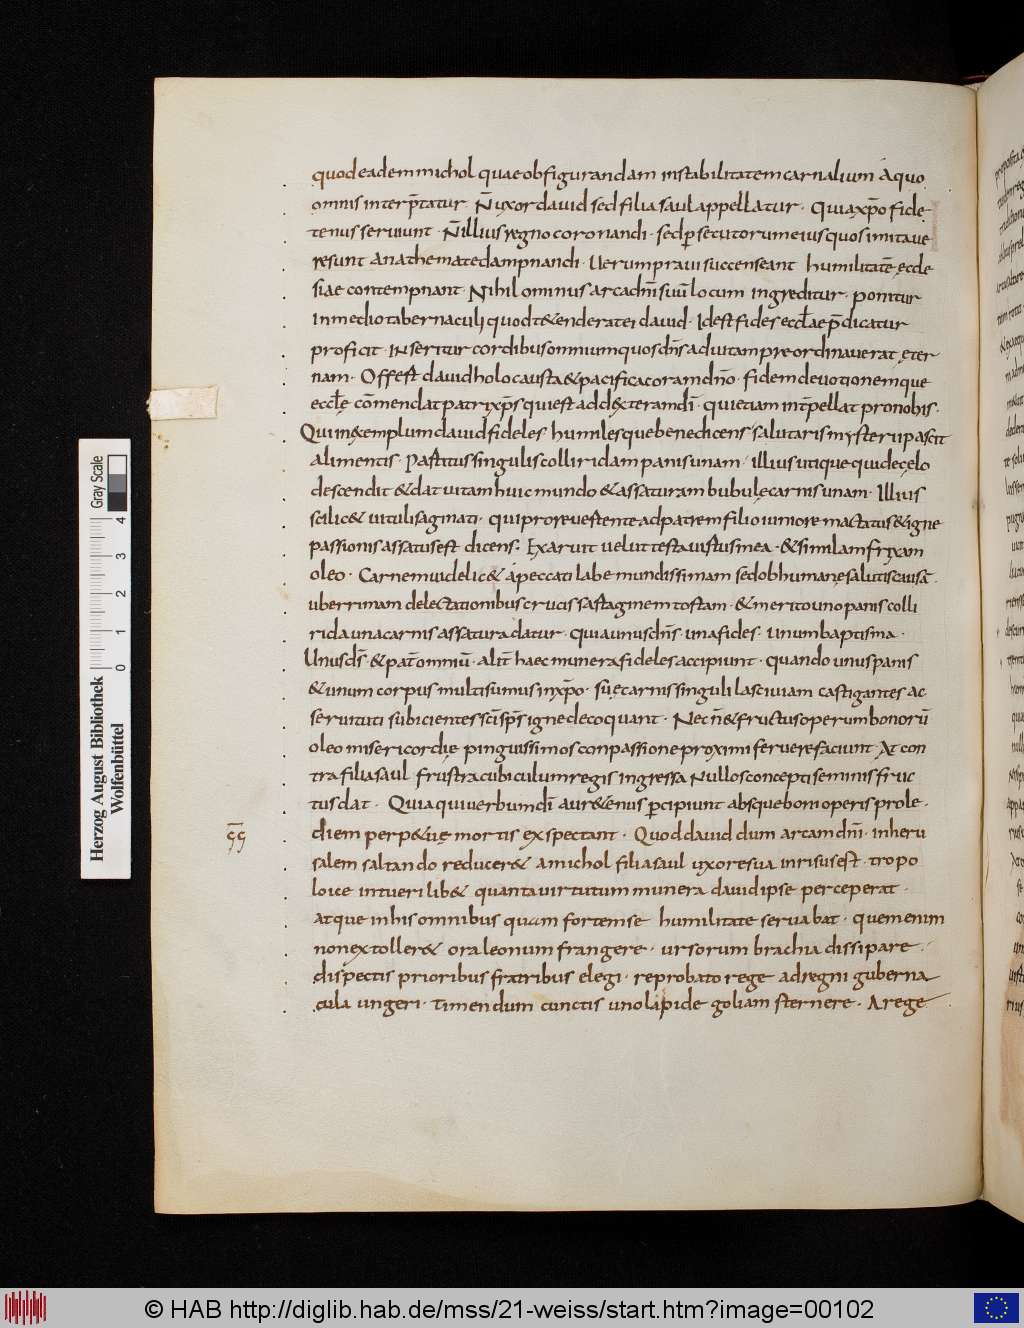 quod eadem michol quae ob figurandam instabilitatem carnalium A quo
omnis interp̄tatur N̄ uxor david sed filia saul appellatur · Quia xp̄o fide
tenus serviunt · N̄ illius regno coronandi · sed p̄secutorum eius quos imitave
re sunt anathemate dampnandi · Uerum pravi succenseant humilitatē eccle
siae contempnant · Nihilominus arca dn̄i suū locum ingreditur · ponitur
in medio tabernaculi quod t&enderat ei david · Id est fides eccl̄ae p̄dicatur
proficit · Inseritur cordibus omnium quos dn̄s ad vitam preordinaverat ęter
nam · Offert david holocausta & pacifica coram dn̄o · fidem devotionemque
eccl̄ę cōmendat patri xp̄s qui est ad dexteram dī · qui etiam int̄pellat pro nobis ·
Qui in exemplum david fideles humilesque benedicens salutaris mysterii pascit
alimentis · Partitus singulis colliridam panis unam · illius utique qui de cęlo
descendit & dat vitam huic mundo & assaturam bubulę carnis unam · Illius
scilic& vituli saginati · qui pro revertente ad patrem filio iuniore mactatus & igne
passionis assatus est dicens · Exaruit velut testa virtus mea · & similam frixam
oleo · Carnem videlic& a peccati labe mundissimam sed ob humanę salutis causā ·
uberrimam delectationibus crucis sartagine tostam · & merito uno panis colli
rida una carnis assatura datur · quia unus dn̄s · una fides · unum baptisma ·
Unus ds̄ · & pat̄ omniū · alit̄ haec munera fideles accipiunt · quando unus panis
& unum corpus multi sumus in xp̄o · suę carnis singuli lasciviam castigantes ac
servituti subicientes sc̄i sp̄s igne decoquant · Nec n̄ & fructus operum bonorū
oleo misericordię pinguissimos conpassione proximi fervere faciunt At con
tra filia saul frustra cubiculum regis ingressa Nullos concepti seminis fruc
tus dat · Quia qui verbum dī aure tenus p̄cipiunt absque boni operis prole ·
diem perp&uę mortis exspectant · Quod david dum arcam dn̄i · in heru
salem saltando reducer& a michol filia saul uxore sua inrisus est · tropo
loice intueri lib& quanta virtutum munera david ipse perceperat ·
atque in his omnibus quam fortem se humilitate servabat · quem enim
non extoller& ora leonum frangere · ursorum brachia dissipare ·
dispectis prioribus fratribus elegi · reprobato rege ad regni guberna
cula ungeri · timendum cunctis uno lapide goliam sternere · A rege
Herzog August Bibliothek
Wolfenbüttel
Gray Scale
0 1 2 3 4
© HAB http://diglib.hab.de/mss/21-weiss/start.htm?image=00102